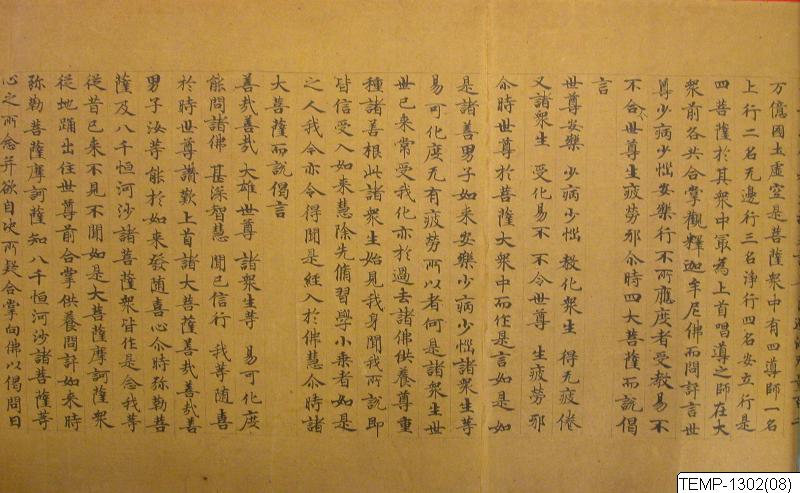 万億國土虛空是菩薩衆中有四導師一名
上行二名无邊行三名淨行四名安立行是
四菩薩於其衆中冣為上首唱導之師在大
衆前各共合掌觀釋迦牟尼佛而問訊言世
尊少病少惱安樂行不所應度者受教易不
不令世尊生疲勞耶尒時四大菩薩而說偈
言
世尊安樂 少病少惱 教化衆生 得无疲倦
又諸衆生 受化易不 不令世尊 生疲勞耶
尒時世尊於菩薩大衆中而作是言如是如
是諸善男子如来安樂少病少惱諸衆生等
易可化度无有疲勞所以者何是諸衆生世
世已来常受我化亦於過去諸佛供養尊重
種諸善根此諸衆生始見我身聞我所說即
皆信受入如来慧除先脩習學小乗者如是
之人我今亦令得聞是経入於佛慧尒時諸
大菩薩而說偈言
善哉善哉 大雄世尊 諸衆生等 易可化度
能問諸佛 甚深智慧 聞已信行 我等随喜
於時世尊讃歎上首諸大菩薩善哉善哉善
男子汝等能於如来發随喜心尒時弥勒菩
薩及八千恒河沙諸菩薩衆皆作是念我等
従昔已来不見不聞如是大菩薩摩訶薩衆
従地踊出住世尊前合掌供養問訊如来時
弥勒菩薩摩訶薩知八千恒河沙諸菩薩等
心之所念并欲自決所疑合掌向佛以偈問曰
TEMP-1302(08)